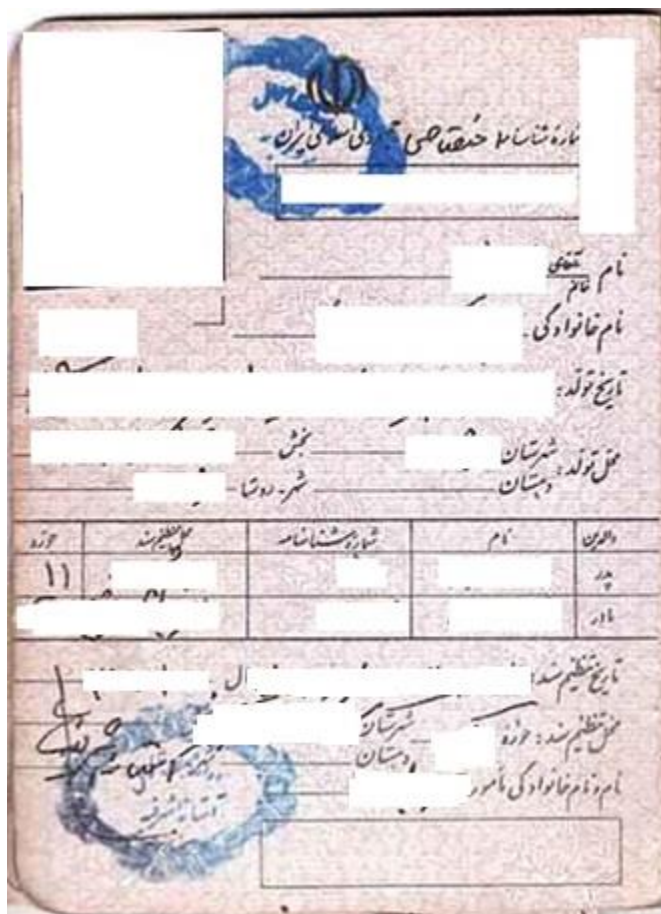 شماره شناسنامه جمهوری اسلامی ایران
نام آقای خانم
نام خانوادگی
تاریخ تولد:
محل تولد: شهرستان بخش
دهستان شهر - روستا
والدین نام شماره شناسنامه محل تنظیم سند حوزه
پدر ۱۱
مادر
تاریخ تنظیم سند:
محل تنظیم سند: حوزه شهرستان
دهستان
نام و نام خانوادگی مأمور
آستانه اشرفیه